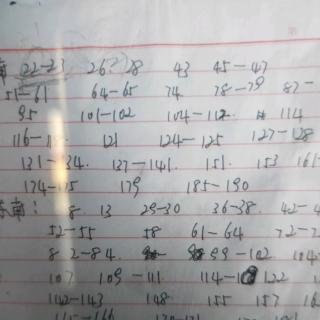 南 22-23 26-28 43 45-47
51-61 64-65 74 78-79 87-
95 101-102 104-112 114
116-11 121 124-125 127-128
131-134. 137-141. 151. 153 161-
174-175 179 185-190
南: 8. 13 29-30 36-38. 42-4
52-55 58 61-64 72-7
82-84. 99-102 104-
107 109-111 114-1 122
142-143 148 155 157 16